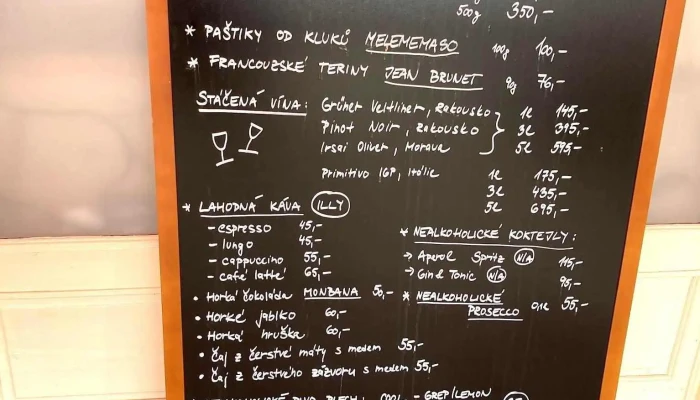 500g 350,-
* PAŠTIKY OD KLUKŮ MELEMEMASO 100g 100,-
* FRANCOUZSKÉ TERINY JEAN BRUNET 90g 76,-
STÁČENÁ VÍNA: Grüner Veltliner, Rakousko 1l 145,-
Pinot Noir, Rakousko 3l 395,-
Irsai Oliver, Morava 5l 595,-
Primitivo IGP, Itálie 1l 175,-
3l 435,-
5l 695,-
* LAHODNÁ KÁVA ILLY
- espresso 45,-
- lungo 45,-
- cappuccino 55,-
- café latté 65,-
• Horká čokoláda MONBANA 50,-
• Horké jablko 60,-
• Horká hruška 60,-
• Čaj z čerstvé máty s medem 55,-
• Čaj z čerstvého zázvoru s medem 55,-
* NEALKOHOLICKÉ KOKTEJLY:
→ Aperol Spritz N/A 115,-
→ Gin & Tonic N/A 95,-
* NEALKOHOLICKÉ
PROSECCO 0,1l 55,-
COOL - GREP/LEMON